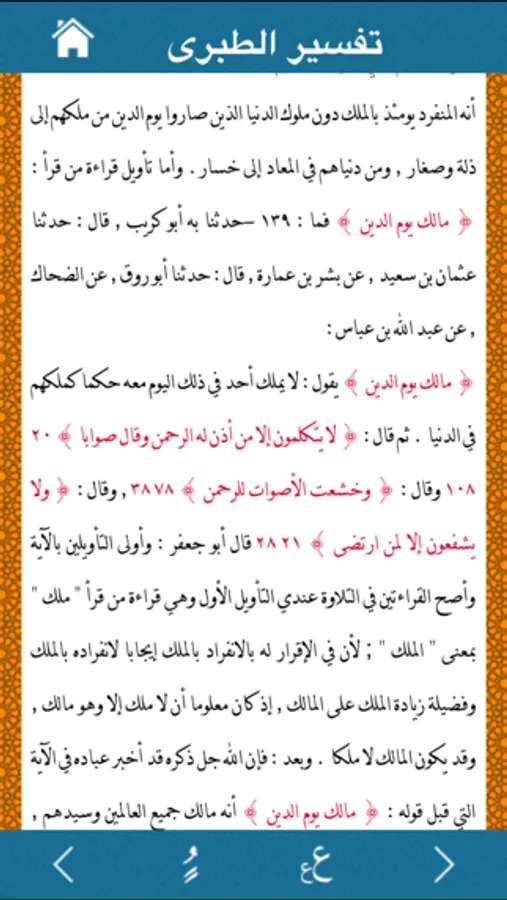 تفسير الطبرى
أنه المنفرد يومئذ بالملك دون ملوك الدنيا الذين صاروا يوم الدين من ملكهم إلى
ذلة وصغار , ومن دنياهم في المعاد إلى خسار . وأما تأويل قراءة من قرأ :
﴿ مالك يوم الدين ﴾ فما : ١٣٩ –حدثنا به أبو كريب , قال : حدثنا
عثمان بن سعيد , عن بشر بن عمارة , قال : حدثنا أبو روق , عن الضحاك
, عن عبد الله بن عباس :
﴿ مالك يوم الدين ﴾ يقول : لا يملك أحد في ذلك اليوم معه حكما كملكهم
في الدنيا . ثم قال : ﴿ لا يتكلمون إلا من أذن له الرحمن وقال صوابا ﴾ ٢٠
١٠٨ وقال : ﴿ وخشعت الأصوات للرحمن ﴾ ٧٨ ٣٨ , وقال : ﴿ ولا
يشفعون إلا لمن ارتضى ﴾ ٢١ ٢٨ قال أبو جعفر : وأولى التأويلين بالآية
وأصح القراءتين في التلاوة عندي التأويل الأول وهي قراءة من قرأ " ملك "
بمعنى " الملك " ; لأن في الإقرار له بالانفراد بالملك إيجابا لانفراده بالملك
وفضيلة زيادة الملك على المالك , إذ كان معلوما أن لا ملك إلا وهو مالك ,
وقد يكون المالك لا ملكا . وبعد : فإن الله جل ذكره قد أخبر عباده في الآية
التي قبل قوله : ﴿ مالك يوم الدين ﴾ أنه مالك جميع العالمين وسيدهم ,
عع